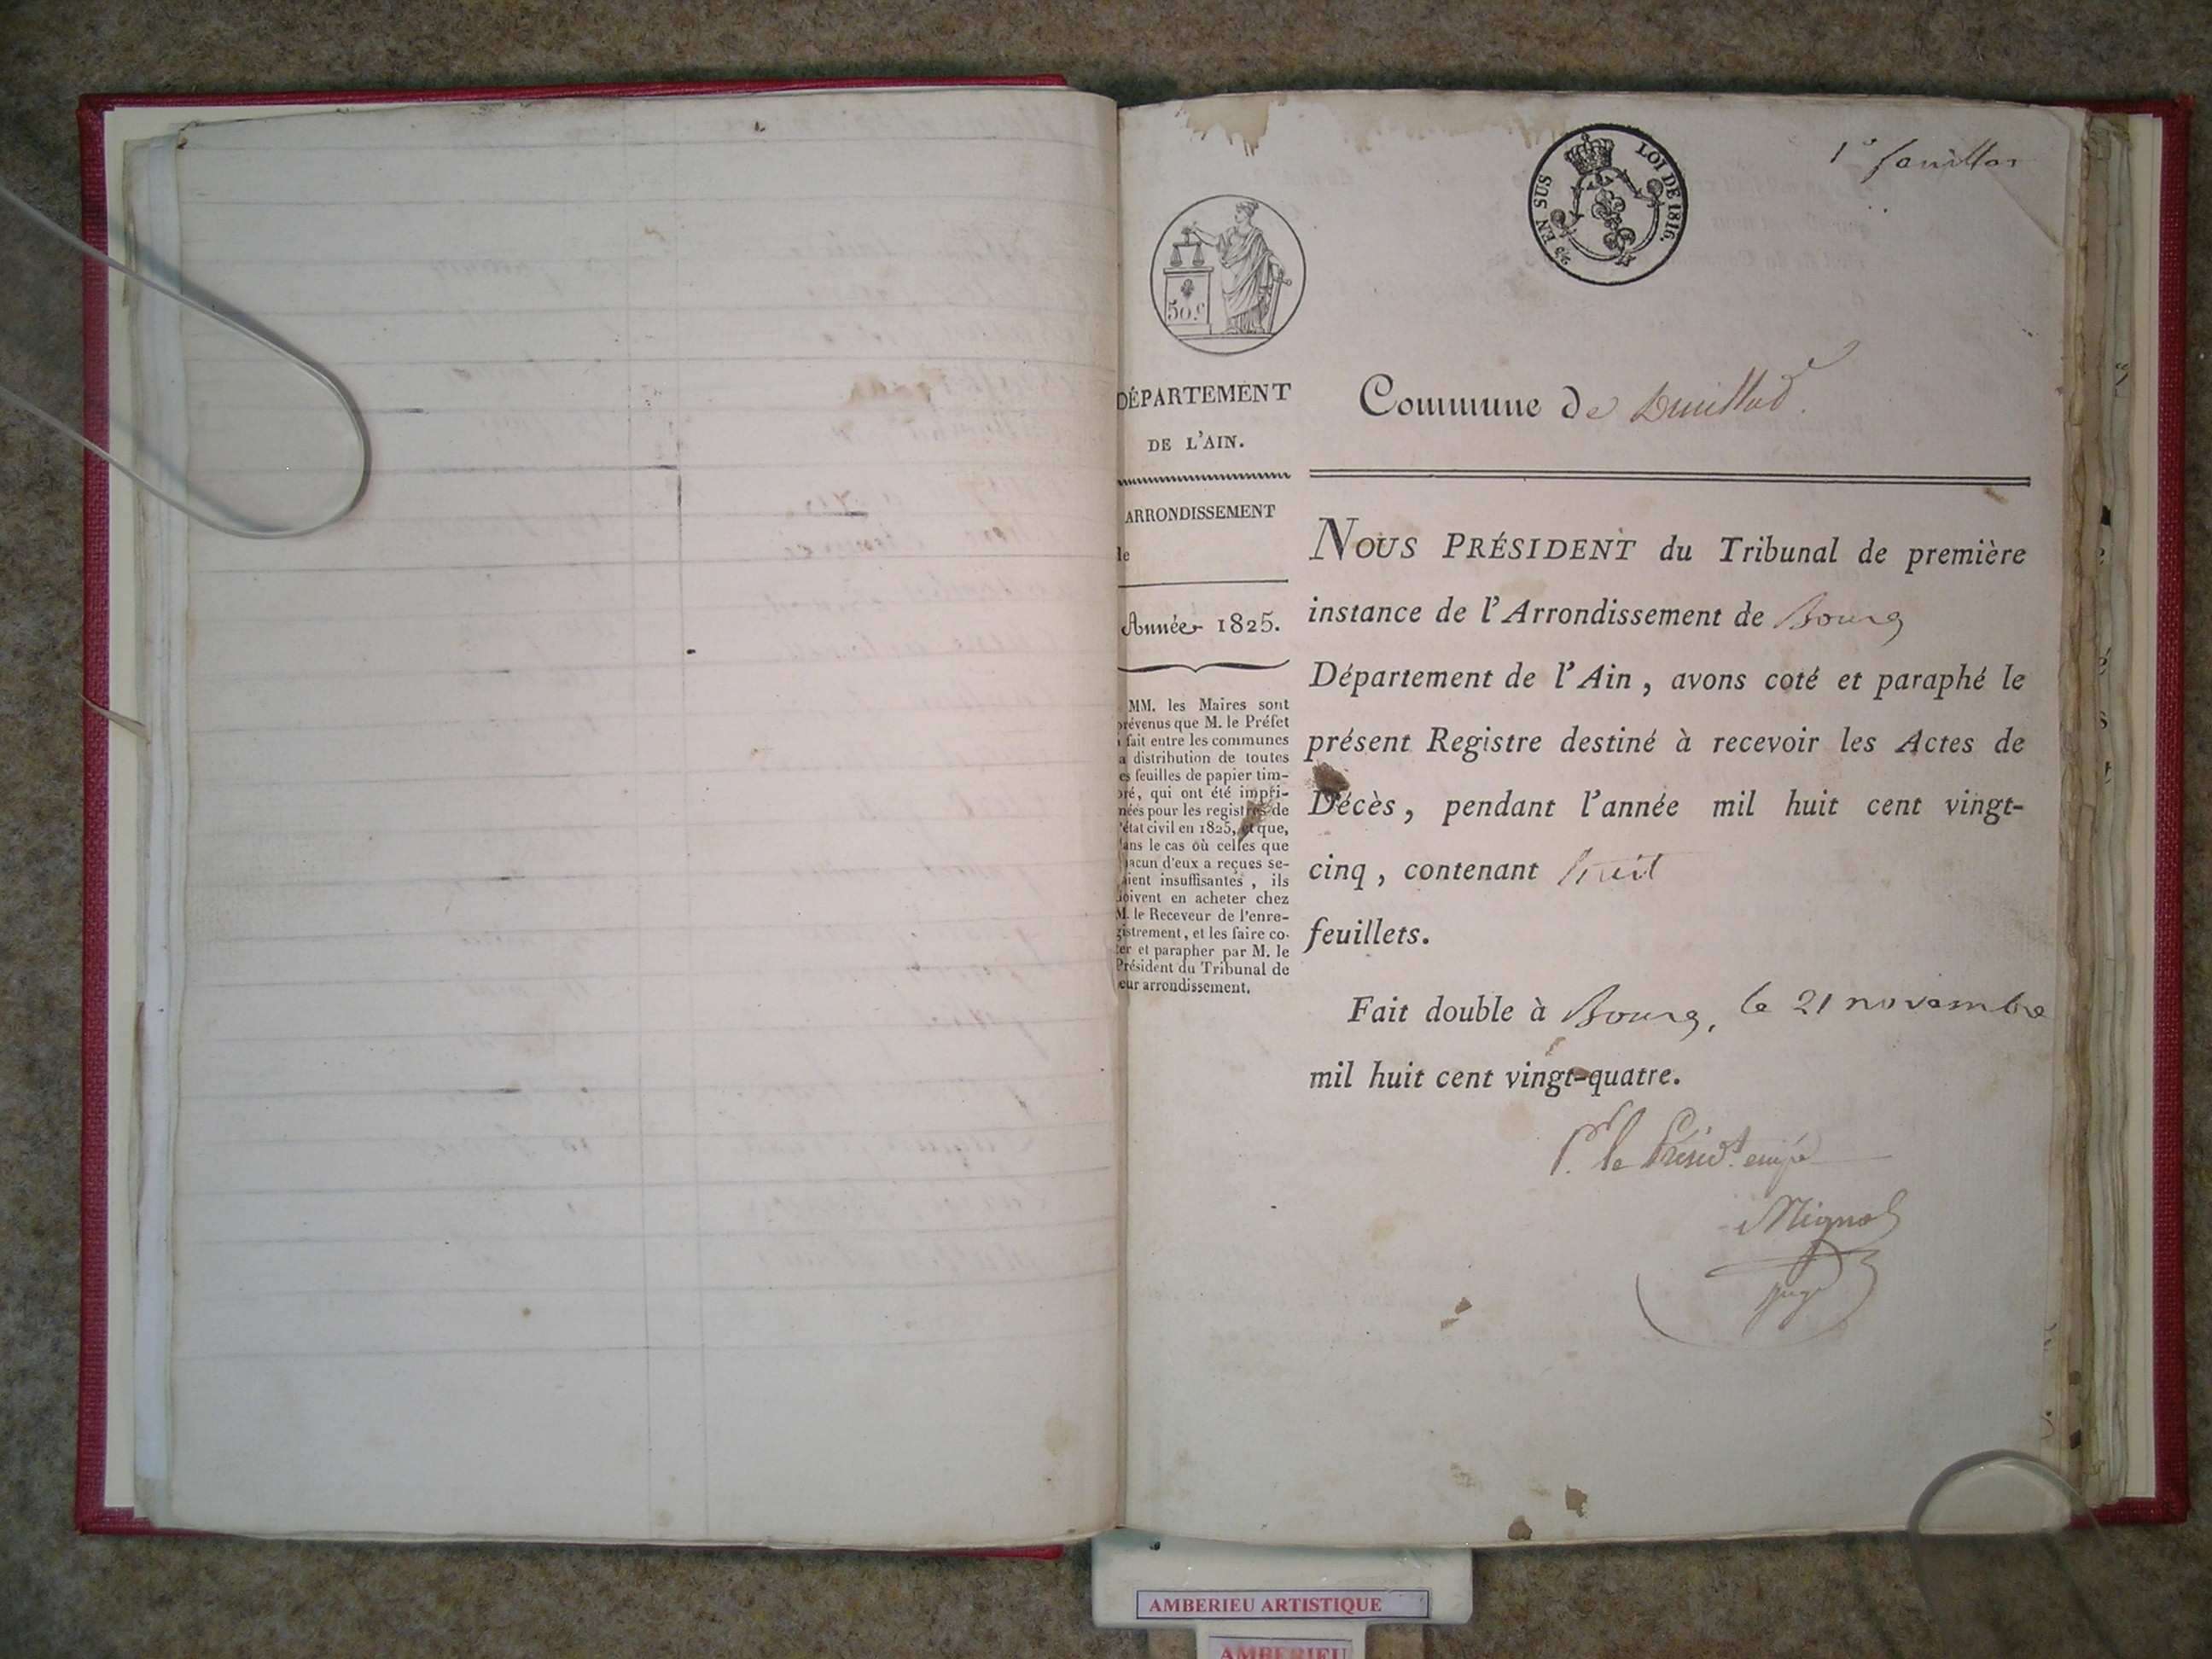 1er feuillet
EN SUS LOI DE 1816.
50.c
DÉPARTEMENT
DE L'AIN.
ARRONDISSEMENT
de
Année 1825.
MM. les Maires sont
prévenus que M. le Préfet
a fait entre les communes
la distribution de toutes
les feuilles de papier tim-
bré, qui ont été impri-
mées pour les registres de
l'état civil en 1825, et que,
dans le cas où celles que
chacun d'eux a reçues se-
raient insuffisantes, ils
doivent en acheter chez
M. le Receveur de l'enre-
gistrement, et les faire co-
ter et parapher par M. le
Président du Tribunal de
leur arrondissement.
Commune de Druillad
NOUS PRÉSIDENT du Tribunal de première
instance de l'Arrondissement de Bourg
Département de l'Ain, avons coté et paraphé le
présent Registre destiné à recevoir les Actes de
Décès, pendant l'année mil huit cent vingt-
cinq, contenant huit
feuillets.
Fait double à Bourg, le 21 novembre
mil huit cent vingt-quatre.
Pr. le Présidt. empé
Mignot
juge
AMBERIEU ARTISTIQUE
AMBERIEU